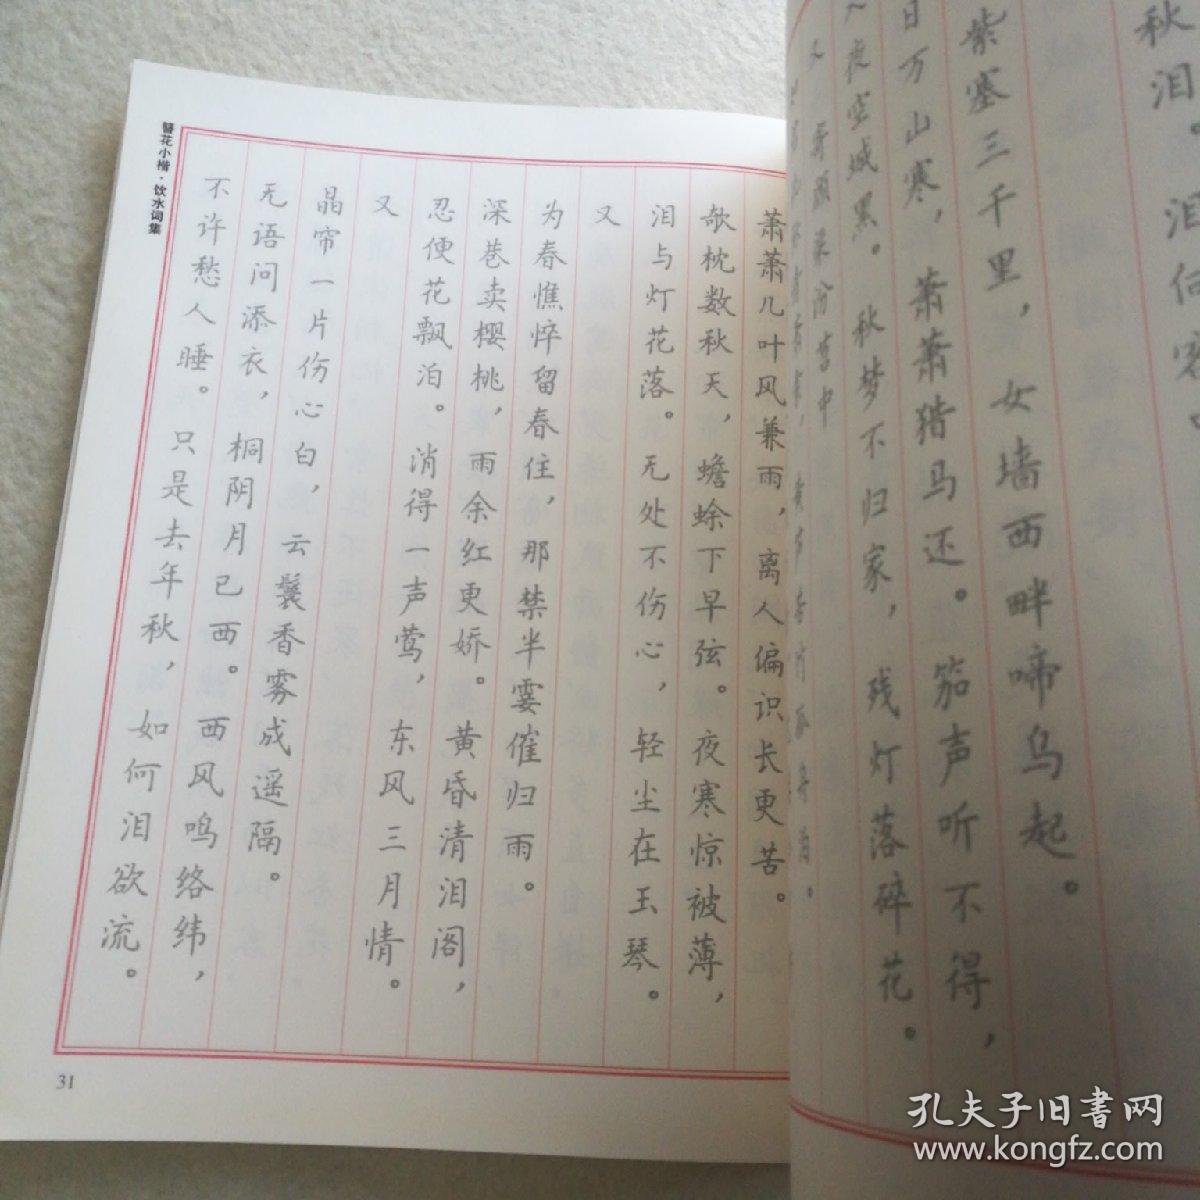 秋泪。泪何
紫塞三千里，女墙西畔啼乌起。
日万山寒，萧萧猎马还。笳声听不得，
入夜空城黑。秋梦不归家，残灯落碎花。
又
萧萧几叶风兼雨，离人偏识长更苦。
欹枕数秋天，蟾蜍下早弦。夜寒惊被薄，
泪与灯花落。无处不伤心，轻尘在玉琴。
又
为春憔悴留春住，那禁半霎催归雨。
深巷卖樱桃，雨余红更娇。黄昏清泪阁，
忍便花飘泊。消得一声莺，东风三月情。
又
晶帘一片伤心白，云鬟香雾成遥隔。
无语问添衣，桐阴月已西。西风鸣络纬，
不许愁人睡。只是去年秋，如何泪欲流。
簪花小楷·饮水词集
31
孔夫子旧书网
www.kongfz.com